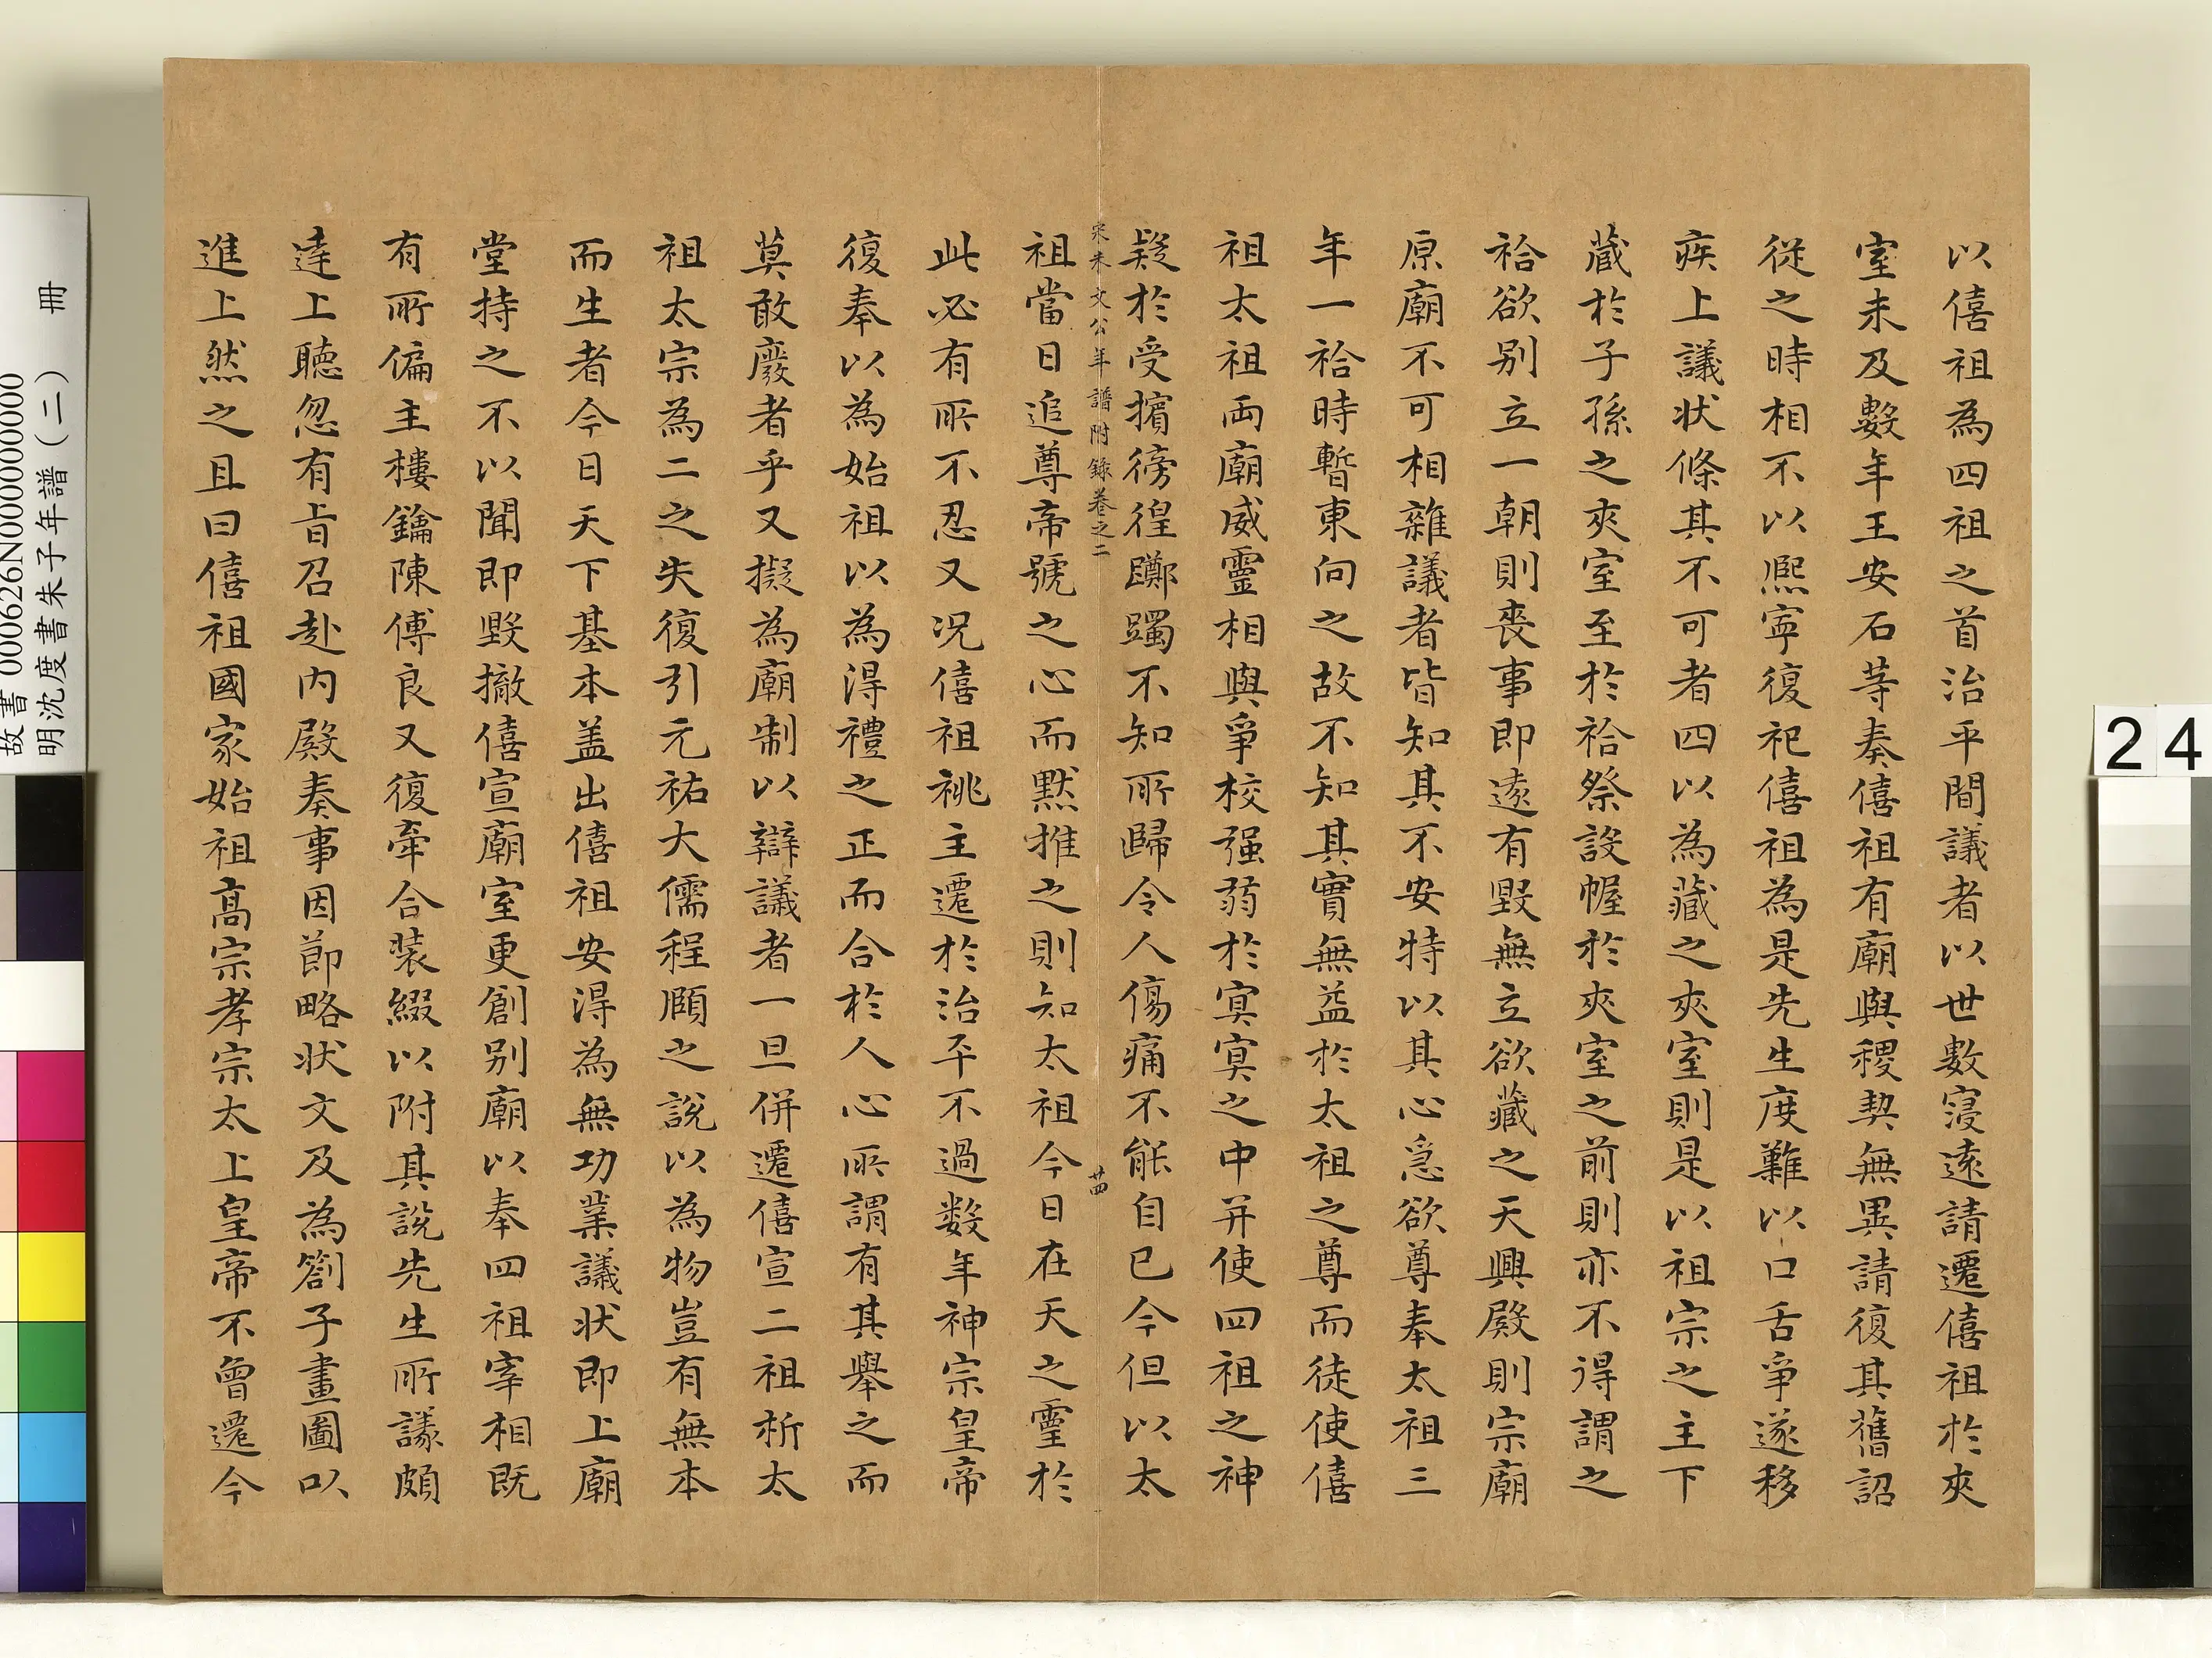 以僖祖為四祖之首治平間議者以世數寖遠請遷僖祖於夾
室未及數年王安石等奏僖祖有廟與稷契無異請復其舊詔
從之時相不以熈寧復祀僖祖為是先生度難以口舌爭遂移
疾上議狀條其不可者四以為藏之夾室則是以祖宗之主下
藏於子孫之夾室至於祫祭設幄於夾室之前則亦不得謂之
祫欲别立一朝則喪事即遠有毀無立欲藏之天興殿則宗廟
原廟不可相雜議者皆知其不安特以其心急欲尊奉太祖三
年一祫時暫東向之故不知其實無益於太祖之尊而徒使僖
祖太祖兩廟威靈相與爭校强弱於冥冥之中并使四祖之神
疑於受擯徬徨躑躅不知所歸令人傷痛不能自已今但以太
宋朱文公年譜附錄卷之二 廿四
祖當日追尊帝號之心而默推之則知太祖今日在天之靈於
此必有所不忍又况僖祖祧主遷於治平不過數年神宗皇帝
復奉以為始祖以為得禮之正而合於人心所謂有其舉之而
莫敢廢者乎又擬為廟制以辯議者一旦併遷僖宣二祖析太
祖太宗為二之失復引元祐大儒程頤之說以為物豈有無本
而生者今日天下基本盖出僖祖安得為無功業議狀即上廟
堂持之不以聞即毀撤僖宣廟室更創别廟以奉四祖宰相既
有所偏主樓鑰陳傅良又復牽合裝綴以附其說先生所議頗
達上聽忽有旨召赴内殿奏事因節略狀文及為劄子畫圖以
進上然之且曰僖祖國家始祖高宗孝宗太上皇帝不曾遷今
故書 000626N000000000
明沈度書朱子年譜(二) 冊
24